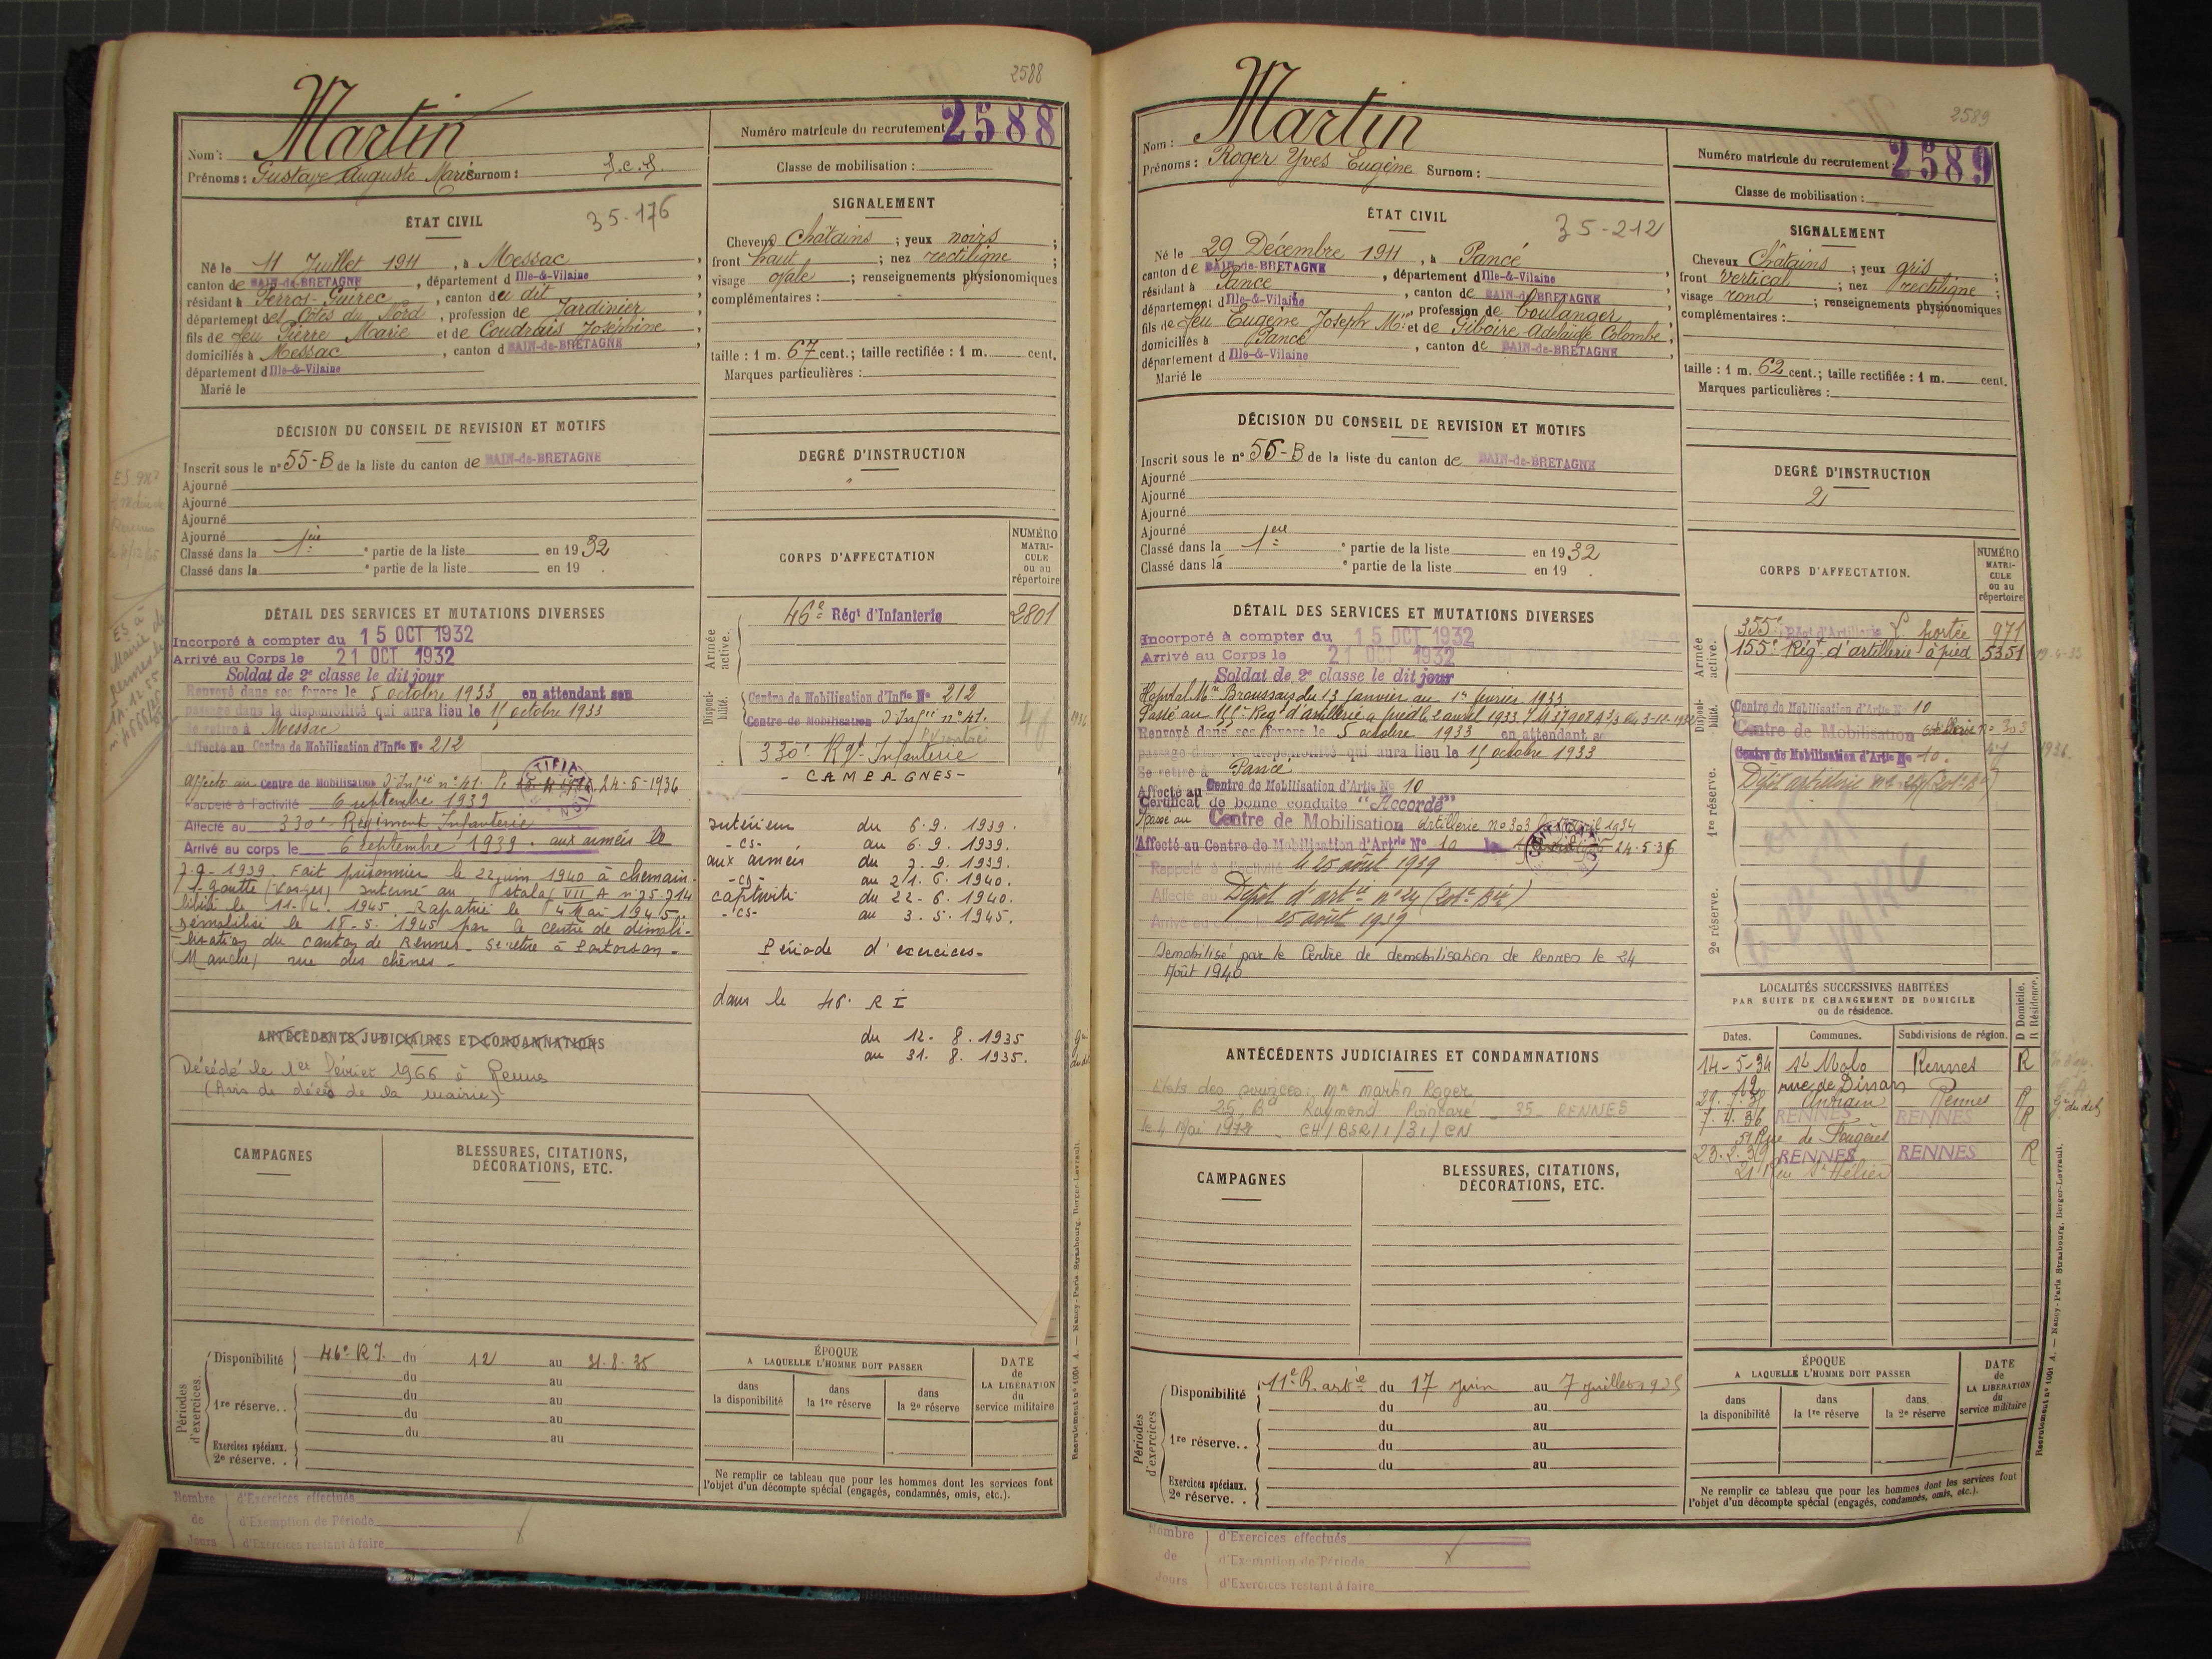 2588
Nom : Martin
Prénoms : Gustave Auguste Marie Surnom : S.c.S.
Numéro matricule du recrutement 2588
Classe de mobilisation :
ÉTAT CIVIL
35-176
Né le 11 Juillet 1911, à Messac,
canton de BAIN-de-BRETAGNE, département d Ille-&-Vilaine
résidant à Perros-Guirec, canton du dit
département des Côtes du Nord, profession de Jardinier,
fils de feu Pierre Marie et de Coudrais Joséphine,
domiciliés à Messac, canton d BAIN-de-BRETAGNE,
département d Ille-&-Vilaine
Marié le
SIGNALEMENT
Cheveux Châtains ; yeux noirs ;
front haut ; nez rectiligne ;
visage ovale ; renseignements physionomiques
complémentaires :
taille : 1 m. 67 cent.; taille rectifiée : 1 m. cent.
Marques particulières :
DÉCISION DU CONSEIL DE REVISION ET MOTIFS
Inscrit sous le n° 55-B de la liste du canton de BAIN-de-BRETAGNE
Ajourné
Ajourné
Ajourné
Ajourné
Classé dans la 1ère e partie de la liste en 1932
Classé dans la e partie de la liste en 19 .
DEGRÉ D'INSTRUCTION
CORPS D'AFFECTATION
NUMÉRO MATRI-CULE ou au répertoire
Armée active.
46e Régt d'Infanterie 2801
Disponibilité.
Centre de Mobilisation d'Infie No 212
Centre de Mobilisation d'Infie n° 41.
330e Rgt Infanterie
- CAMPAGNES -
Intérieur du 6.9.1939.
-cs- au 6.9.1939.
aux armées du 7.9.1939.
-cs- au 21.6.1940.
captivité du 22-6.1940.
-cs- au 3.5.1945.
Période d'exercices-
dans le 46. RI
du 12-8.1935
au 31.8.1935.
DÉTAIL DES SERVICES ET MUTATIONS DIVERSES
Incorporé à compter du 15 OCT 1932
Arrivé au Corps le 21 OCT 1932
Soldat de 2e classe le dit jour
Renvoyé dans ses foyers le 5 octobre 1933 en attendant son
passage dans la disponibilité qui aura lieu le 15 octobre 1933
Se retire à Messac
Affecté au Centre de Mobilisation d'Infie No 212
Affecté au Centre de Mobilisation d'Infie n° 41. le 24-5-1936
Rappelé à l'activité 6 septembre 1939
Affecté au 330e Régiment Infanterie
Arrivé au corps le 6 septembre 1939. aux armées le
7.9-1939. Fait prisonnier le 22 juin 1940 à chemain-
l. goutte (Vosges) interné au stalag VII A n° 75714
libéré le 11-4.1945 Rapatrié le 4 Mai 1945.
Démobilisé le 18-5.1945 par le centre de démobi-
-lisation du canton de Rennes. Se retire à Pontorson-
(Manche) rue des chênes-
ANTÉCÉDENTS JUDICIAIRES ET CONDAMNATIONS
Décédé le 1er février 1966 à Rennes
(Avis de décès de la mairie)
CAMPAGNES
BLESSURES, CITATIONS, DÉCORATIONS, ETC.
Périodes d'exercices.
Disponibilité 46e R.I. du 12 au 31.8.35
du au
1re réserve. . du au
du au
du au
Exercices spéciaux.
2e réserve. .
ÉPOQUE
A LAQUELLE L'HOMME DOIT PASSER
dans la disponibilité
dans la 1re réserve
dans la 2e réserve
DATE de LA LIBÉRATION du service militaire
Ne remplir ce tableau que pour les hommes dont les services font
l'objet d'un décompte spécial (engagés, condamnés, omis, etc.).
Nombre de Jours
d'Exercices effectués
d'Exemption de Période
d'Exercices restant à faire
Recrutement n° 1001 A. — Nancy-Paris-Strasbourg, Berger-Levrault.
2589
Nom : Martin
Prénoms : Roger Yves Eugène Surnom :
Numéro matricule du recrutement : 2589
Classe de mobilisation :
ÉTAT CIVIL
35-212
Né le 29 Décembre 1911, à Pancé,
canton de BAIN-de-BRETAGNE, département d Ille-&-Vilaine
résidant à Pancé, canton de BAIN-de-BRETAGNE
département d Ille-&-Vilaine, profession de boulanger,
fils de feu Eugène Joseph Mie et de Giboire Adélaïde Colombe,
domiciliés à Pancé, canton de BAIN-de-BRETAGNE,
département d Ille-&-Vilaine
Marié le
SIGNALEMENT
Cheveux Châtains ; yeux gris ;
front vertical ; nez rectiligne ;
visage rond ; renseignements physionomiques
complémentaires :
taille : 1 m. 62 cent.; taille rectifiée : 1 m. cent.
Marques particulières :
DÉCISION DU CONSEIL DE REVISION ET MOTIFS
Inscrit sous le n° 56-B de la liste du canton de BAIN-de-BRETAGNE
Ajourné
Ajourné
Ajourné
Ajourné
Classé dans la 1ère e partie de la liste en 1932
Classé dans la e partie de la liste en 19 .
DEGRÉ D'INSTRUCTION
2
CORPS D'AFFECTATION.
NUMÉRO MATRI-CULE ou au répertoire
Armée active.
355e Régt d'Artillerie portée 971
155e Régt d'artillerie à pied 5351
Disponibilité.
Centre de Mobilisation d'Artie No 10
Centre de Mobilisation Artillerie n° 303
Centre de Mobilisation d'Artie No 10. 1936
1re réserve.
Dépôt artillerie
2e réserve.
DÉTAIL DES SERVICES ET MUTATIONS DIVERSES
Incorporé à compter du 15 OCT 1932
Arrivé au Corps le 21 OCT 1932
Soldat de 2e classe le dit jour
Hôpital Mre Broussais du 13 Janvier au 1er février 1933
Passé au 155e Régt d'artillerie à pied le 2 avril 1933
Renvoyé dans ses foyers le 5 octobre 1933 en attendant so
passage dans la disponibilité qui aura lieu le 15 octobre 1933
Se retire à Pancé
Affecté au Centre de Mobilisation d'Artie No 10
Certificat de bonne conduite "Accordé"
Passé au Centre de Mobilisation Artillerie n° 303 avril 1934
Affecté au Centre de Mobilisation d'Artrie No 10 le 24.5.36
Rappelé à l'activité le 25 août 1939
Affecté au Dépôt d'artie n° 24 (201e Bie)
Arrivé au corps le 25 août 1939
Démobilisé par le Centre de démobilisation de Rennes le 24
Août 1940
LOCALITÉS SUCCESSIVES HABITÉES
PAR SUITE DE CHANGEMENT DE DOMICILE
ou de résidence.
Dates. Communes. Subdivisions de région. D Domicile. R Résidence.
14-5-34 St Malo Rennes R
12 rue de Dinan
Rennes R
7.4.36 RENNES RENNES R
51 Rue de Fougères
23.2.39 RENNES RENNES R
21 Rue St Hélier
ANTÉCÉDENTS JUDICIAIRES ET CONDAMNATIONS
Etats des services : Mr Martin Roger
25, Bd Raymond Poincaré - 35 - RENNES
le 4 Mai 1972 - CH/BSR/1/31/CN
CAMPAGNES
BLESSURES, CITATIONS, DÉCORATIONS, ETC.
Périodes d'exercices
Disponibilité 11e R. artie du 17 juin au 7 juillet 1935
du au
1re réserve. . du au
du au
du au
Exercices spéciaux.
2e réserve. .
ÉPOQUE
A LAQUELLE L'HOMME DOIT PASSER
dans la disponibilité
dans la 1re réserve
dans la 2e réserve
DATE de LA LIBÉRATION du service militaire
Ne remplir ce tableau que pour les hommes dont les services font
l'objet d'un décompte spécial (engagés, condamnés, omis, etc.).
Nombre de Jours
d'Exercices effectués
d'Exemption de Période
d'Exercices restant à faire
Recrutement n° 1001 A. — Nancy-Paris-Strasbourg, Berger-Levrault.